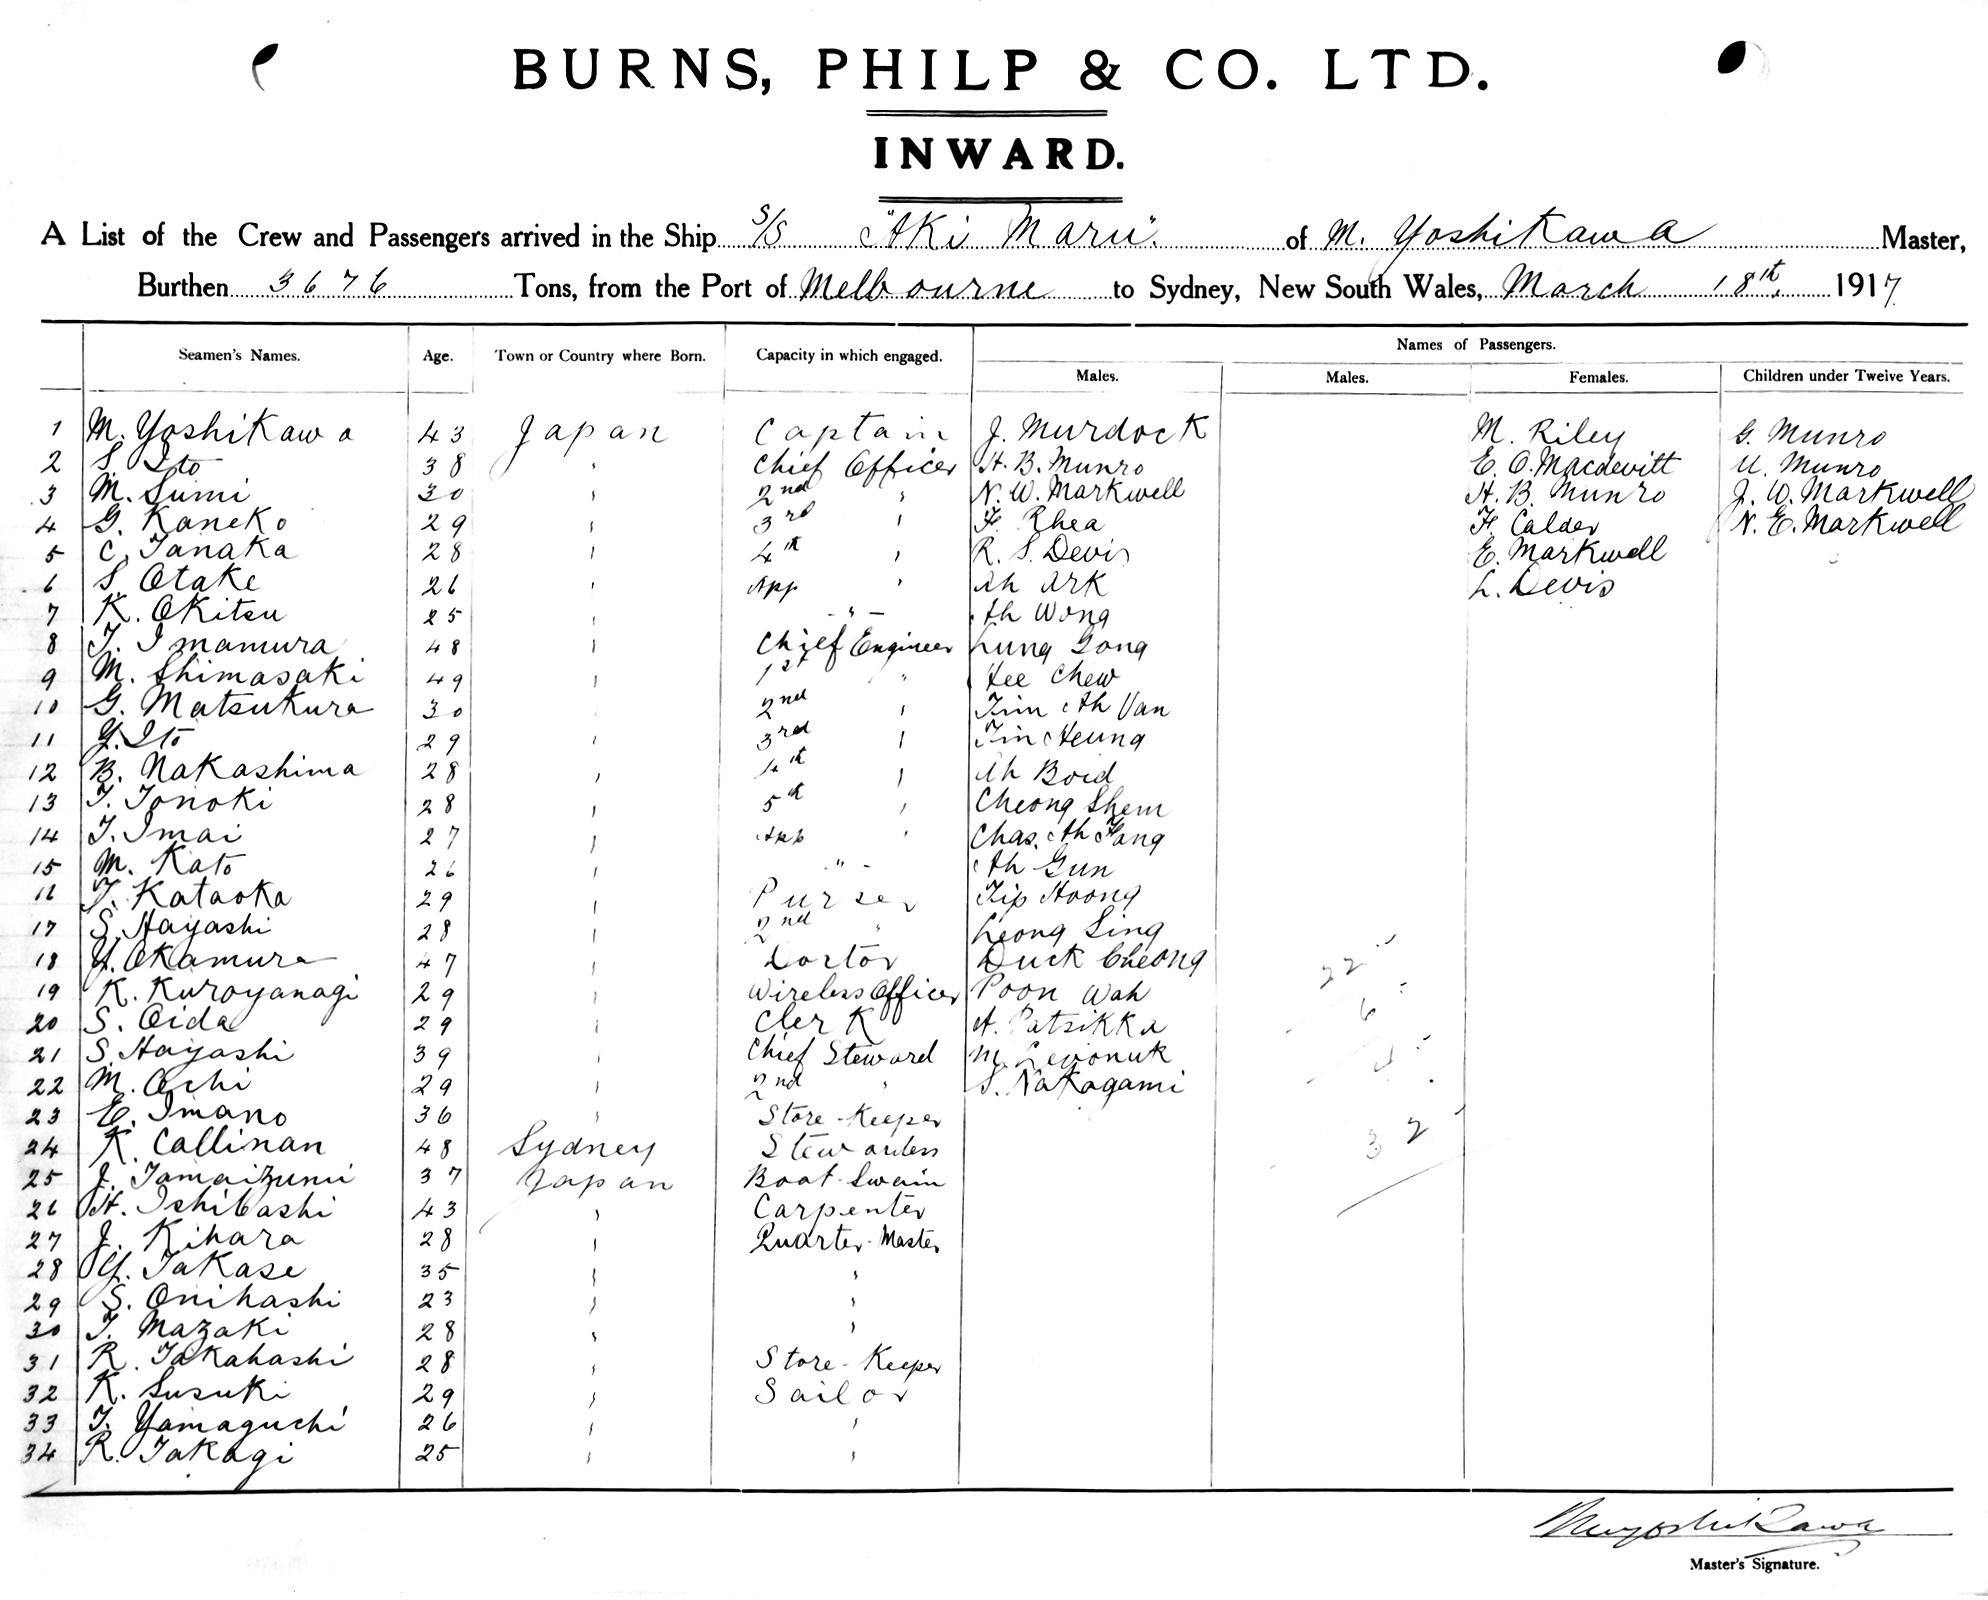 BURNS, PHILP & CO. LTD.
INWARD.
A List of the Crew and Passengers arrived in the Ship S/S "Aki Maru". of M. Yoshikawa Master,
Burthen 3676 Tons, from the Port of Melbourne to Sydney, New South Wales, March 18th, 1917
Seamen's Names. Age. Town or Country where Born. Capacity in which engaged. Names of Passengers.
Males. Males. Females. Children under Twelve Years.
1 M. Yoshikawa 43 Japan Captain J. Murdock M. Riley G. Munro
2 S. Ito 38 " Chief Officer H. B. Munro E. O. Macdevitt U. Munro
3 M. Sumi 30 " 2nd " N. W. Markwell H. B. Munro J. W. Markwell
4 G. Kaneko 29 " 3rd " F. Rhea F. Calder N. E. Markwell
5 C. Tanaka 28 " 4th " R. S. Devis E. Markwell
6 S. Otake 26 " App " Ah Ark L. Devis
7 K. Okitsu 25 " - " - Ah Wong
8 T. Imamura 48 " Chief Engineer Lung Gong
9 M. Shimasaki 49 " 1st " Hee Chew
10 G. Matsukura 30 " 2nd " Tim Ah Van
11 Y. Ito 29 " 3rd " Tin Heung
12 B. Nakashima 28 " 4th " Ah Boid
13 T. Tonoki 28 " 5th " Cheong Shem
14 T. Imai 27 " App " Chas. Ah Fang
15 M. Kato 26 " " - Ah Gun
16 T. Kataoka 29 " Purser Tip Hoong
17 S. Hayashi 28 " 2nd " Leong Sing
18 Y. Okamura 47 " Doctor Duck Cheong 22
19 K. Kuroyanagi 29 " Wireless Officer Poon Wah
20 S. Oida 29 " Clerk A. Patsikka 6
21 S. Hayashi 39 " Chief Steward M. Levonuk
22 M. Ochi 29 " 2nd " S. Nakagami
23 E. Imano 36 " Store-Keeper
24 K. Callinan 48 Sydney Stewardess 32
25 J. Tamaizumi 37 Japan Boat-Swain
26 H. Ishibashi 43 " Carpenter
27 J. Kihara 28 " Quarter-Master
28 Y. Takase 35 " "
29 S. Onihashi 23 " "
30 T. Mazaki 28 " "
31 R. Takahashi 28 " Store-Keeper
32 K. Susuki 29 " Sailor
33 T. Yamaguchi 26 " "
34 R. Takagi 25 " "
M Yoshikawa
Master's Signature.